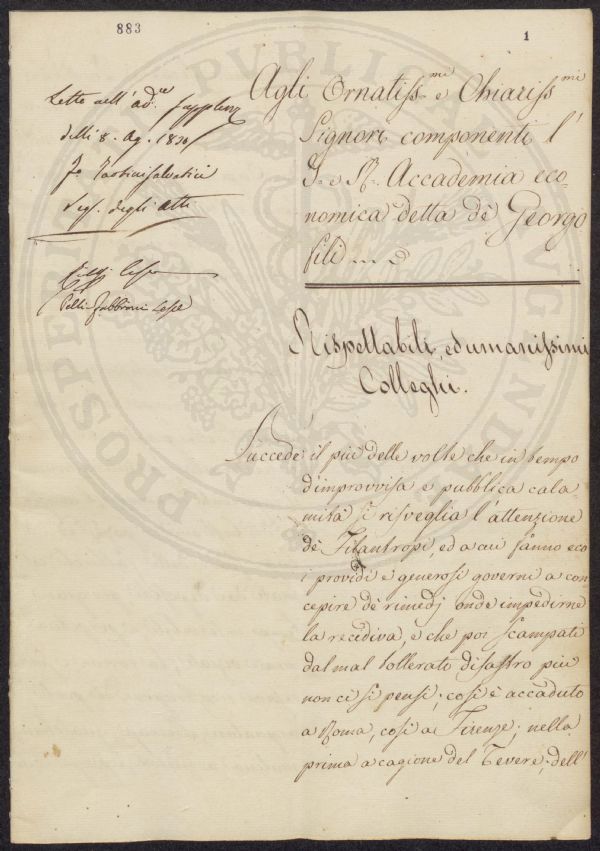 883
1
Letto nell' ad.
delli 8. Ag. 1830
Seg. degli atti
Pelli-Fabbroni
Agli Ornatiss.mi e Chiariss.mi
Signori componenti l'
I. e R. Accademia eco-
nomica detta de' Georgo
fili
Rispettabili, ed umanissimi
Colleghi.
Succede il più delle volte che in tempo
d'improvvisa e pubblica cala
mità si risveglia l'attenzione
de' Filantropi, ed a cui fanno eco
i providi e generosi governi a con
cepire de' rimedj onde impedirne
la recidiva, e che poi scampati
dal mal tollerato disastro più
non ci si pensi; così è accaduto
a Roma, così a Firenze; nella
prima a cagione del Tevere, dell'
PROSPERI
PVBLICAE
AVGENDAE